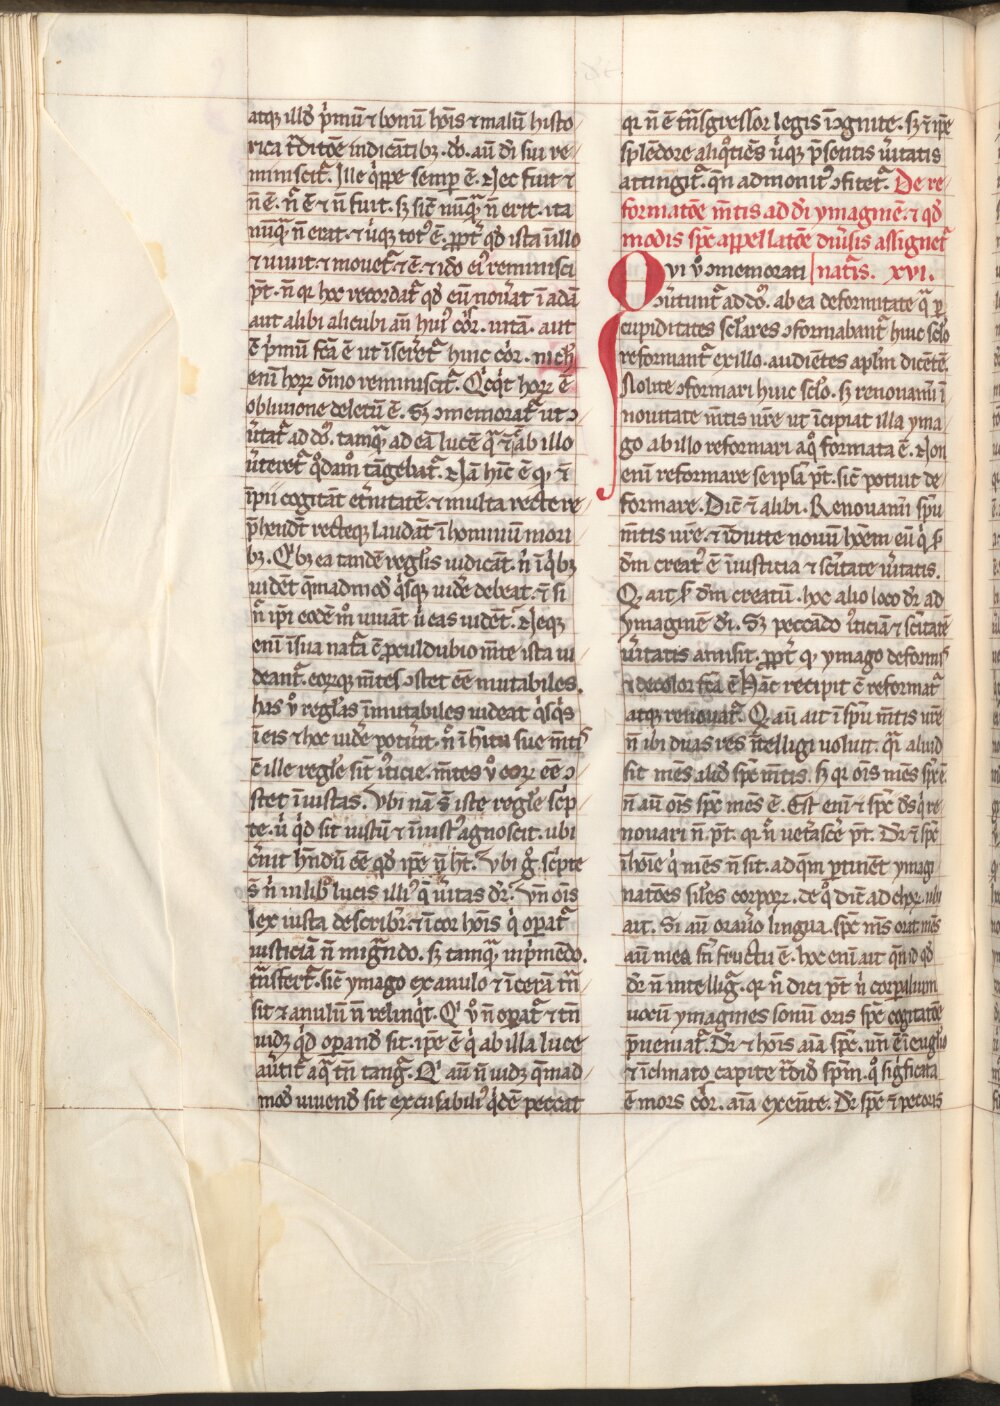 atqꝫ illđ p̍mū ⁊ bonū hōis ⁊ malū histo
rica t̃ditōe indicātibꝫ. do. aū di sui re
miniscit᷑. Ille q̍ppe semp ē. Nec fuit ⁊
n̄ ē. n̄ ē ⁊ n̄ fuit. sꝫ sic̄ nūq̄ n̄ erit. ita
nūq̄ n̄ erat. ⁊ ubiqꝫ totꝰ ē. ꝓpt̾ qđ ista ī illo
⁊ uiuit ⁊ mouet᷑ ⁊ ē. ⁊ iđo eiꝰ reminisci
pt̄. n̄ qꝛ hoc recordat᷑ qđ eū nou̾at ī adā
aut alibi alicubi an̄ huiꝰ cor̄. uitā. aut
c̄ p̍mū fc̄a ē ut īseret᷑ huic cor̄. nichil
enī hoꝝ oīno reminiscit᷑. Qicq̍t hoꝝ ē
obliuione deletū ē. Sꝫ ↄmemorat᷑ ut ↄ
u̾tat᷑ ad doꝰ. tamq̄ ad eā lucē q̄ ⁊ ab illo
u̾teret᷑ q̊dam̊ tāgebat᷑. Nā hīc ē qꝫ ⁊
īpii cogitāt et̾nitatē. ⁊ multa recte re
p̄hendūt recteqꝫ laudāt ī hominū mori
bꝫ. Qibꝫ ea tandē reglis iudicāt. n̄ ī q̍bꝫ
uidēt q̄madmođ q̍sqꝫ uiue̾ debeat. ⁊ si
n̄ ip̄i eodē m̊ uiuāt ubi eas uidēt. Neqꝫ
enī ī sua nat̾a ē ꝓculdubio m̄te ista ui
deant᷑. eoꝝqꝫ m̄tes ↄstet eē mutabiles.
has u̾o reglas īmutabiles uideat q̍sq̍s
ī eis ⁊ hoc uide̾ potu̾it. n̄ ī hītu sue m̄tis
c̄ ille regle sīt iusticie. m̄tes u̾o eoꝝ eē ↄ
stet īiustas. Vbi nā s̄ iste regle sc̍p
te. ubi q̍d sit iustū ⁊ īiustū agnoscit. ubi
c̾nit hn̄dū eē qđ ipe n̄ hꝫ. Vbi g̊ sc̍pte
s̄ n̍ in lib̊ lucis illiꝰ q̄ u̾itas dr̄. Vn̄ oīs
lex iusta describit᷑ ⁊ ī cor hōis q̍ opat᷑
iusticiā n̄ mig̃ndo. sꝫ tamq̄ īp̍mēdo.
t̃nsfert᷑. sic̄ ymago ex anulo ⁊ ī cerā t̃n
sit ⁊ anulū n̄ relinq̍t. Qi u̾o n̄ opat᷑ ⁊ tn̄
uidꝫ q̍d opandū sit. ipe ē q̍ ab illa luce
au̾tit᷑ a q̄ tn̄ tang̾. Qi aū n̄ uidꝫ q̄mad
mođ uiuendū sit excusabiliꝰ q̍dē peccat
qꝛ n̄ ē t̃nsgressor legis īↄgnite. sꝫ ⁊ ipe
splēdore aliq̊tiēs u̾iqꝫ p̄sentis u̾itatis
attingit᷑. qn̄ admonitꝰ ↄfitet᷑. De re
formatōe m̄tis ad di ymaginē. ⁊ qđ
modis spc̄ appellatōe diu̾sis assignet᷑
Qvi u̾o ↄmemorati | nat̾is. xvi.
ↄu̾tunt᷑ ad doꝰ. ab ea deformitate q̄ ꝑ
cupiditates sclares ↄformabant᷑ huic sclo
reformant᷑ ex illo. audiētes aplm dicētē.
Nolite ↄformari huic sclo. sꝫ renouam̄i ī
nouitate m̄tis ur̄e ut īcipiat illa yma
go ab illo reformari a q̊ formata ē. Non
enī reformare se ipsā pt̄. sic̄ potuit de
formare. Dic̄ ⁊ alibi. Renouam̄i spū
m̄tis ur̄e. ⁊ īduite nouū hoīem eū q̍ s̄
dm̄ creatꝰ ē ī iusticia ⁊ sc̄itate u̾itatis.
Qꝫ ait s̄ dm̄ creatum. hoc alio loco dr̄ ad
ymaginē di. Sꝫ peccādo iusticiā ⁊ sc̄itatē
u̾itatis amisit. ꝓpt̾ qꝫ ymago deformis
⁊ decolor fc̄a ē. Hāc recipit c̄ reformat᷑
atqꝫ renouat᷑. Qꝫ aū ait ī spū m̄tis ur̄e
n̄ ibi duas res ītelligi uoluit. q̄i aliud
sit mēs aliđ spc̄ m̄tis. sꝫ qꝛ oīs mēs spc̄ ē
n̄ aū oīs spc̄ mēs ē. Est enī ⁊ spc̄ ds̄ q̍ re
nouari n̄ pt̄. qꝛ n̄ uet̾asce̾ pt̄. Dr̄ ⁊ spc̄
ī hoīe q̍ mēs n̄ sit. ad q̄m ꝑtinēt ymagi
natōes siles corpoꝝ. de q̊ dic̄ ad choꝝ. ubi
ait. Si aū orau̾o lingua. spc̄ ms̄ orat mēs
aū mea sn̄ fructu ē. hoc enī ait qn̄ id qđ
dr̄ n̄ intellig̾. qꝛ n̄ dici pt̄ n̍ corpalium
uocū ymagines sonū oris spc̄ cogitatōe
p̄ueniāt. Dr̄ ⁊ hōis aīa spc̄. un̄ ē ī euglio
⁊ īclinato capite t̃diđ spm̄. q̊ sig̍ficata
ē mors cor̄. aīa exeūte. Dr̄ spc̄ ⁊ pecoris